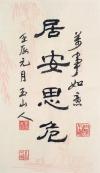 萬事如意
居安思危
壬辰元月玉山人